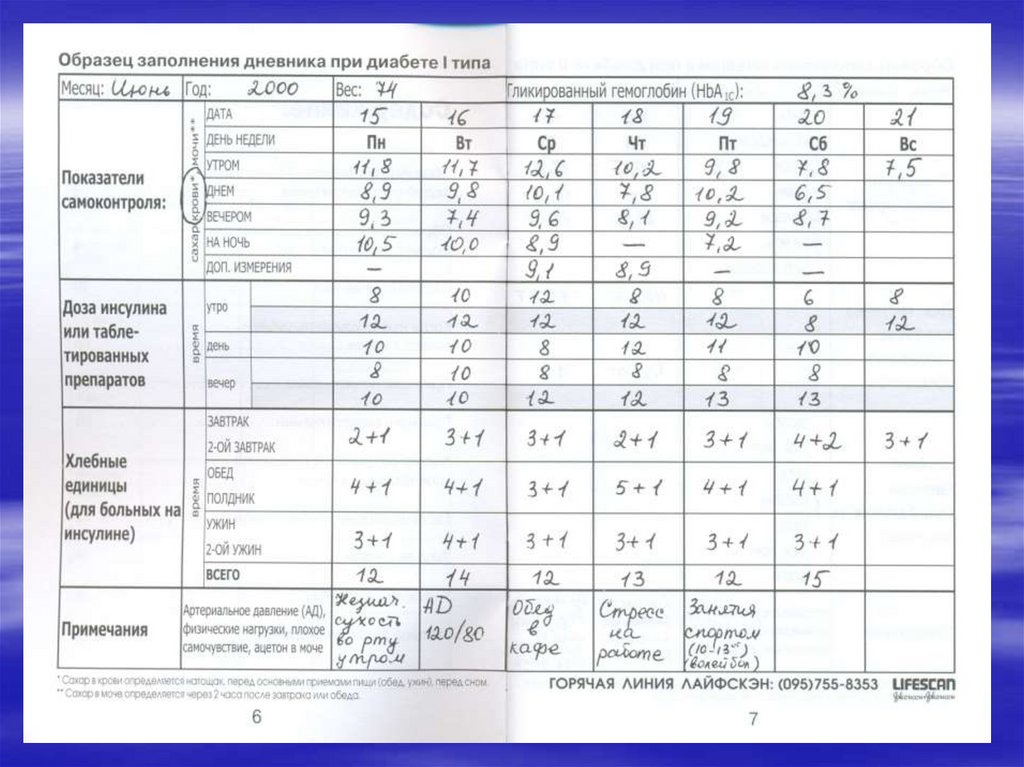 Образец заполнения дневника при диабете I типа
Месяц: Июнь Год: 2000 Вес: 74 Гликированный гемоглобин (HbA1C): 8,3 %
Показатели самоконтроля:
сахар крови* мочи**
ДАТА 15 16 17 18 19 20 21
ДЕНЬ НЕДЕЛИ Пн Вт Ср Чт Пт Сб Вс
УТРОМ 11,8 11,7 12,6 10,2 9,8 7,8 7,5
ДНЕМ 8,9 9,8 10,1 7,8 10,2 6,5
ВЕЧЕРОМ 9,3 7,4 9,6 8,1 9,2 8,7
НА НОЧЬ 10,5 10,0 8,9 — 7,2 —
ДОП. ИЗМЕРЕНИЯ — 9,1 8,9 — —
Доза инсулина
или табле-
тированных
препаратов
время
утро 8 10 12 8 8 6 8
12 12 12 12 12 8 12
день 10 10 8 12 11 10
вечер 8 10 8 8 8 8
10 10 12 12 13 13
Хлебные
единицы
(для больных на
инсулине)
время
ЗАВТРАК
2-ОЙ ЗАВТРАК 2+1 3+1 3+1 2+1 3+1 4+2 3+1
ОБЕД
ПОЛДНИК 4+1 4+1 3+1 5+1 4+1 4+1
УЖИН
2-ОЙ УЖИН 3+1 4+1 3+1 3+1 3+1 3+1
ВСЕГО 12 14 12 13 12 15
Примечания
Артериальное давление (АД),
физические нагрузки, плохое
самочувствие, ацетон в моче
Незнач.
сухость
во рту
утром
АД
120/80
Обед
в
кафе
Стресс
на
работе
Занятия
спортом
(10-13 чс)
(волейбол)
* Сахар в крови определяется натощак, перед основными приемами пищи (обед, ужин), перед сном.
** Сахар в моче определяется через 2 часа после завтрака или обеда.
ГОРЯЧАЯ ЛИНИЯ ЛАЙФСКЭН: (095)755-8353 LIFESCAN
6
7